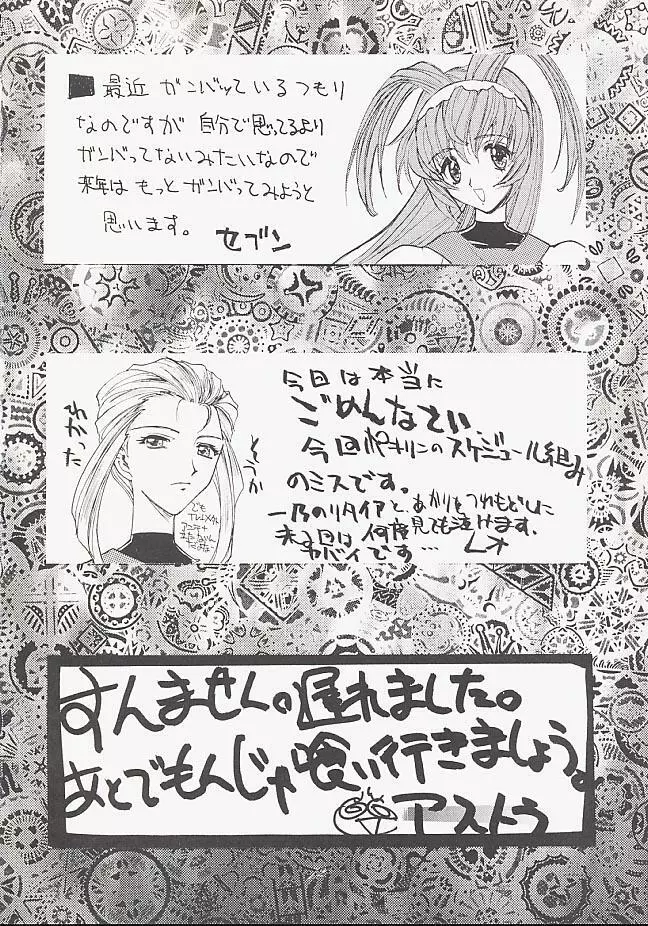 最近 ガンバッているつもり
なのですが 自分で思ってるより
ガンバってないみたいなので
来年は もっと ガンバってみようと
思います。 セブン
今回は本当に
ごめんなさい
今回のスケジュール組み
のミスです。
一乃のリタイアと、あかりをつれもどしに
来る回は 何度見ても泣けます。
ヤバイです…
とうか
でも
すんません。遅れました。
あとでもんじゃ喰い行きましょう。
アストラ